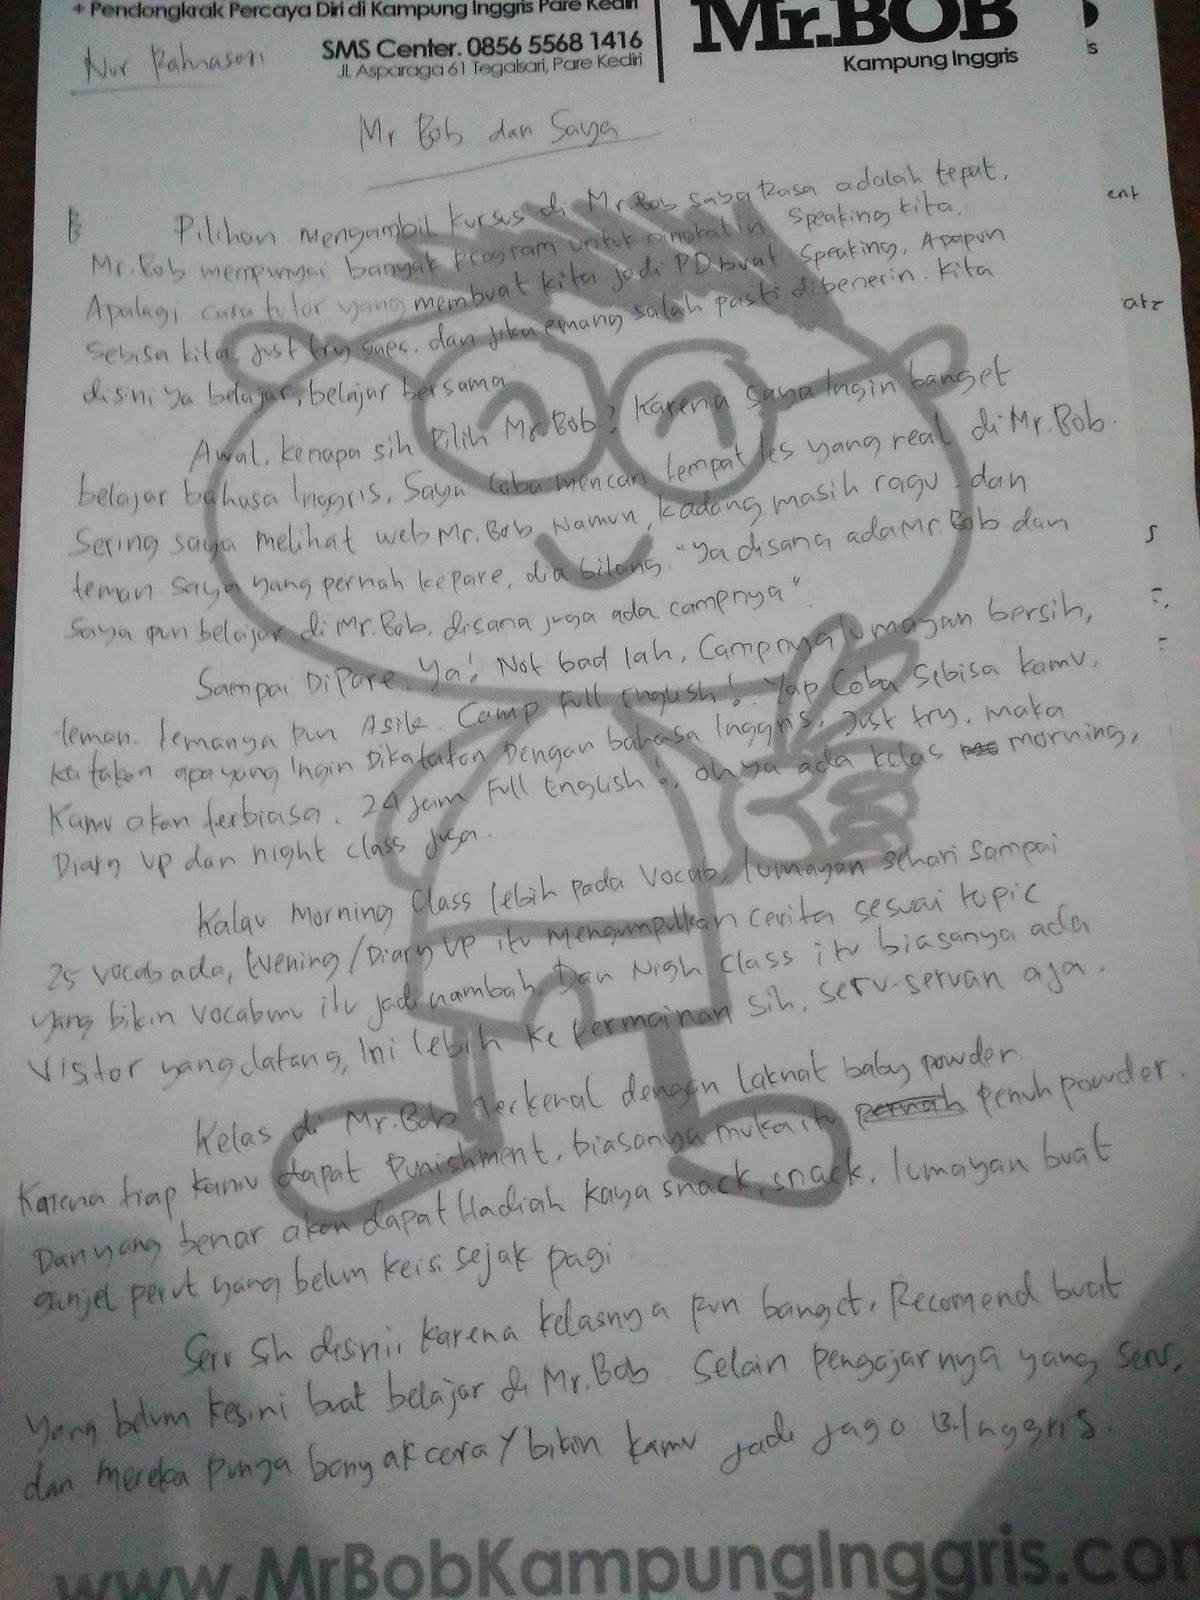 + Pendongkrak Percaya Diri di Kampung Inggris Pare Kediri
SMS Center. 0856 5568 1416
Jl. Asparaga 61 Tegalsari, Pare Kediri
Mr.BOB
Kampung Inggris
s
Nur Rahmasari
Mr Bob dan Saya
Pilihan mengambil kursus di Mr.Bob saya Rasa adalah tepat,
Mr.Bob mempunyai banyak program untuk ningkatin Speaking kita.
Apalagi cara tutor yang membuat kita jadi PD buat Speaking, Apapun
sebisa kita, just try gaes. dan jika emang salah pasti dibenerin. Kita
disini ya belajar, belajar bersama
Awal, kenapa sih Pilih Mr.Bob? Karena saya Ingin banget
belajar bahasa Inggris, Saya Coba mencari tempat les yang real di Mr.Bob.
Sering saya melihat web Mr.Bob Namun, kadang masih ragu. dan
teman saya yang pernah kepare, dia bilang. "Ya disana ada Mr.Bob dan
saya pun belajar di Mr.Bob, disana juga ada campnya".
Sampai Di Pare. Ya! Not bad lah, Campnya lumayan bersih,
teman- temanya pun Asik. Camp Full English! Yap Coba Sebisa kamu,
katakan apa yang Ingin Dikatakan Dengan bahasa Inggris, Just try, maka
Kamu akan terbiasa. 24 jam Full English!, oh ya ada kelas morning,
Diary Up dan night class juga.
Kalau Morning Class lebih pada Vocab, lumayan sehari sampai
25 vocab ada, Evening/Diary Up itu mengumpulkan cerita sesuai topic
yang bikin vocabmu itu jadi nambah. Dan Nigh Class itu biasanya ada
Visitor yang datang, Ini lebih ke permainan sih, seru-seruan aja.
Kelas di Mr.Bob Terkenal dengan laknat baby powder.
Karena tiap kamu dapat Punishment, biasanya muka itu penuh powder.
Dan yang benar akan dapat Hadiah kaya snack, snack, lumayan buat
ganjel perut yang belum keisi sejak pagi.
Seru Sih disini, karena kelasnya pun banget, Recomend buat
yang belum kesini buat belajar di Mr.Bob Selain Pengajarnya yang seru,
dan mereka punya banyak cara / bikin kamu jadi jago B.Inggris.
www.MrBobKampungInggris.com
ent